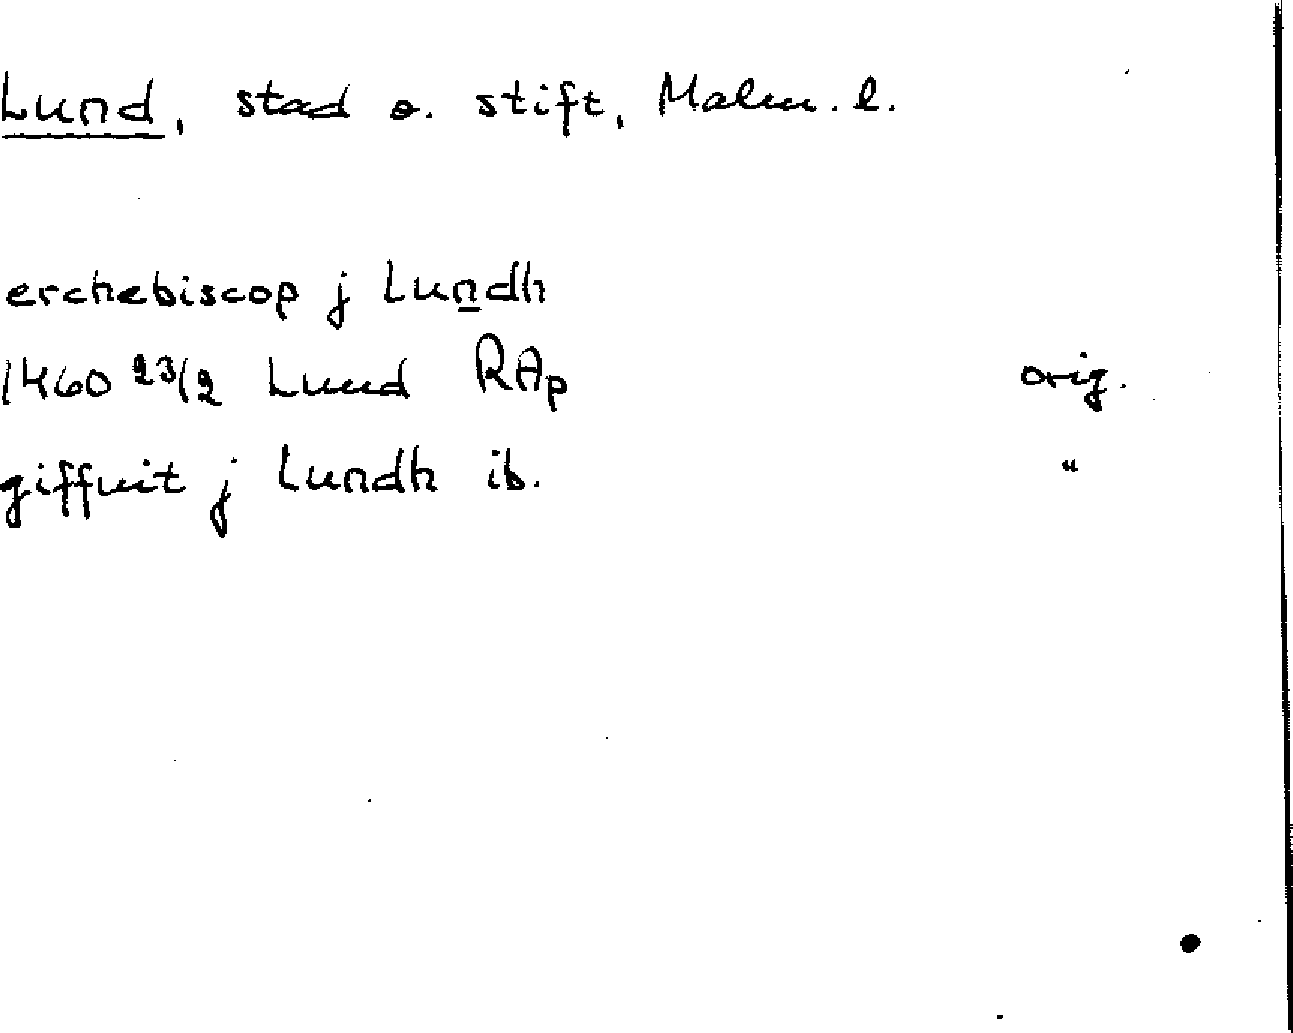 Lund, stad o. stift, Malm. l.
erchebiscop j Lundh
1460 23/2 Lund RAp orig.
giffuit j Lundh ib. "